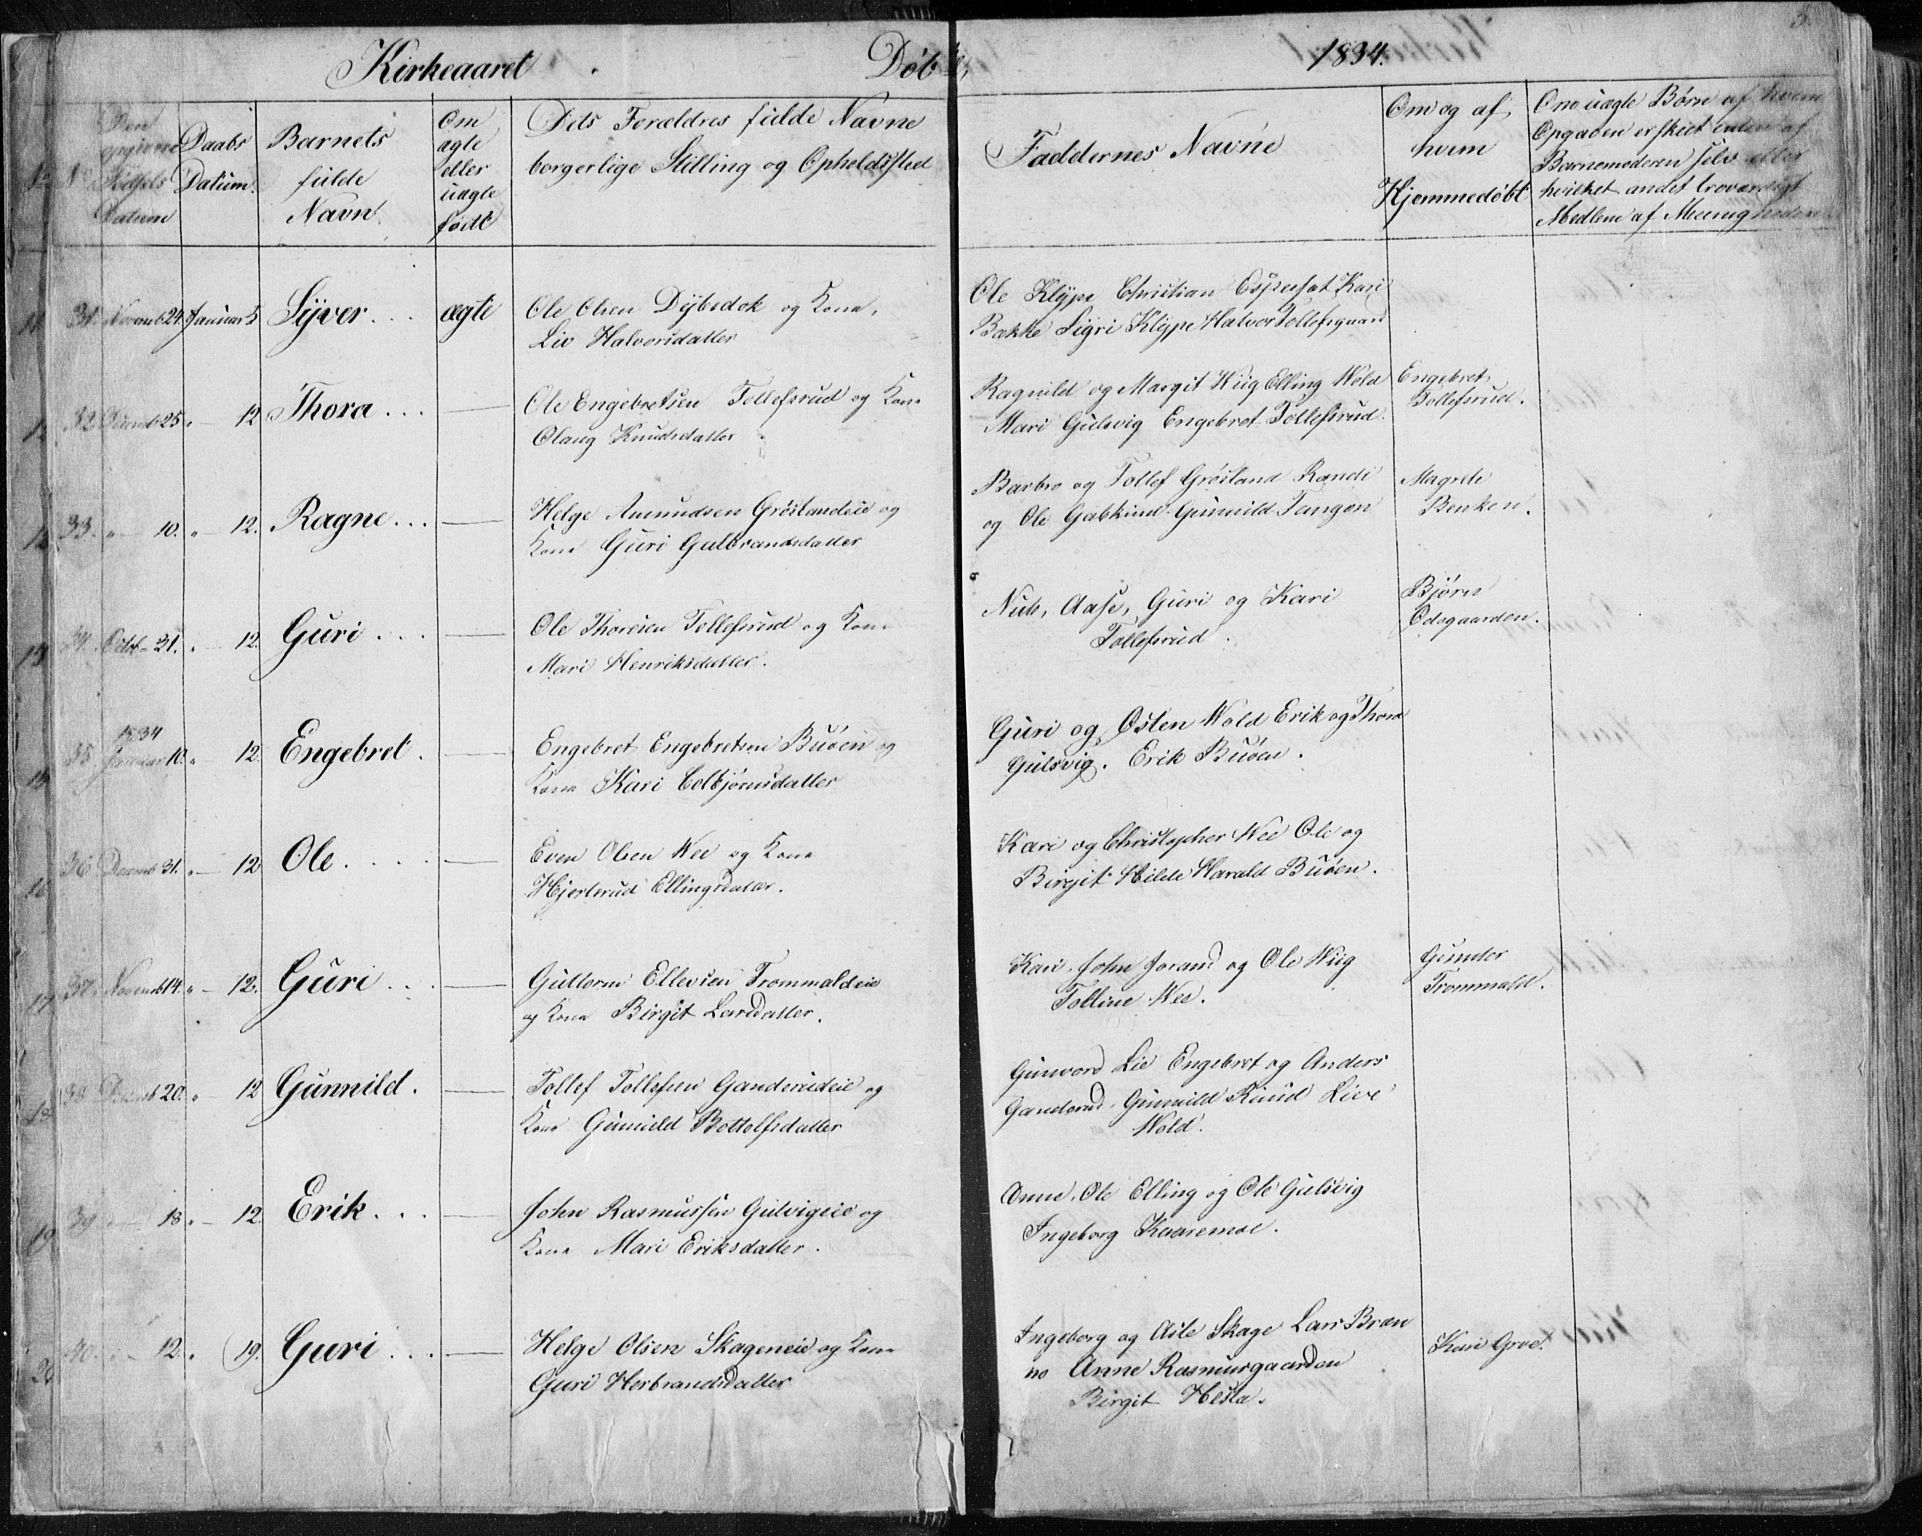 Kirkeaaret Døbte, 1834.
No Den opgivne Fødsels Datum
Daabs Datum.
Barnets fulde Navn.
Om ægte eller uægte født
Dets Forældres fulde Navne borgerlige Stilling og Opholdssted
Faddernes Navne
Om og af hvem Hjemmedøbt
Om uægte Børn af hvem Opgaven er skeet enten af Barnemoderen selv eller hvilket andet troværdigt Medlem af Menigheden
31. Novemb 24. Januar 5 Syver . . . ægte Ole Olsen Dybedok og Kone,
Liv Halvorsdatter
Ole Klype Christian Kari
Bakke Sigri Klype Halvor Tollefsgaard
32 Decemb 25 " — 12 Thora . . . — Ole Engebretsen Tollefsrud og Kone
Olaug Knudsdatter
Ragnild og Margit Wiig Elling Wold
Mari Gulsvig Engebret Tollefsrud.
Engebret
Tollefsrud.
33. " — 10. " — 12. Ragne . . . — Helge Amundsen Grøslandeie og
Kone Guri Gulbrandsdatter
Barbro og Tollef Grøsland Randi
og Ole Gunnild Tangen
Magrete
Benken.
34. Octob — 31. " — 12. Guri . . . — Ole Thoresen Tollefsrud og Kone
Mari Henriksdatter.
Nub, Aase, Guri og Kari
Tollefsrud.
Bjørn
Odsgaarden.
35. 1834 Januar 10. " 12. Engebret . — Engebret Engebretsen Buøen og
Kone Kari Colbjørnsdatter
Guri og Østen Wold Erik og Thora
Gulsvig. Erik Buøen.
36 Decemb 31. " — 12 Ole . . . . — Even Olsen Wee og Kone
Hjertrud Ellingsdatter.
Kari og Christopher Wee Ole og
Birgit Hilde Harald Buøen.
37. Novemb 14. " — 12. Guri . . — Guttorm Ellevsen Trommaldeie
og Kone Birgit Larsdatter.
Kari, John Jorand og Ole Wiig
Tolline Wee.
Gunder
Trommald.
38 Decemb 20. " 12 Gunnild . — Tollef Tollefsen Ganderudeie og
Kone Gunnild Bottolfsdatter
Gunvord Lie Engebret og Anders
Ganderud, Gunnild Ruud Live
Wold.
39 " — 18. " — 12. Erik . . . — John Rasmussen Gulsvigeie og
Kone Mari Eriksdatter.
Anne, Ole Elling og Ole Gulsvig
Ingeborg Kaaremoe.
40. " — 12. " (19. Guri . . . — Helge Olsen Skageneie og Kone
Guri Herbrandsdatter
Ingeborg og Asle Skage Lars Bræn
no Anne Rasmusgaarden
Birgit Hesla.
Kari Groe.